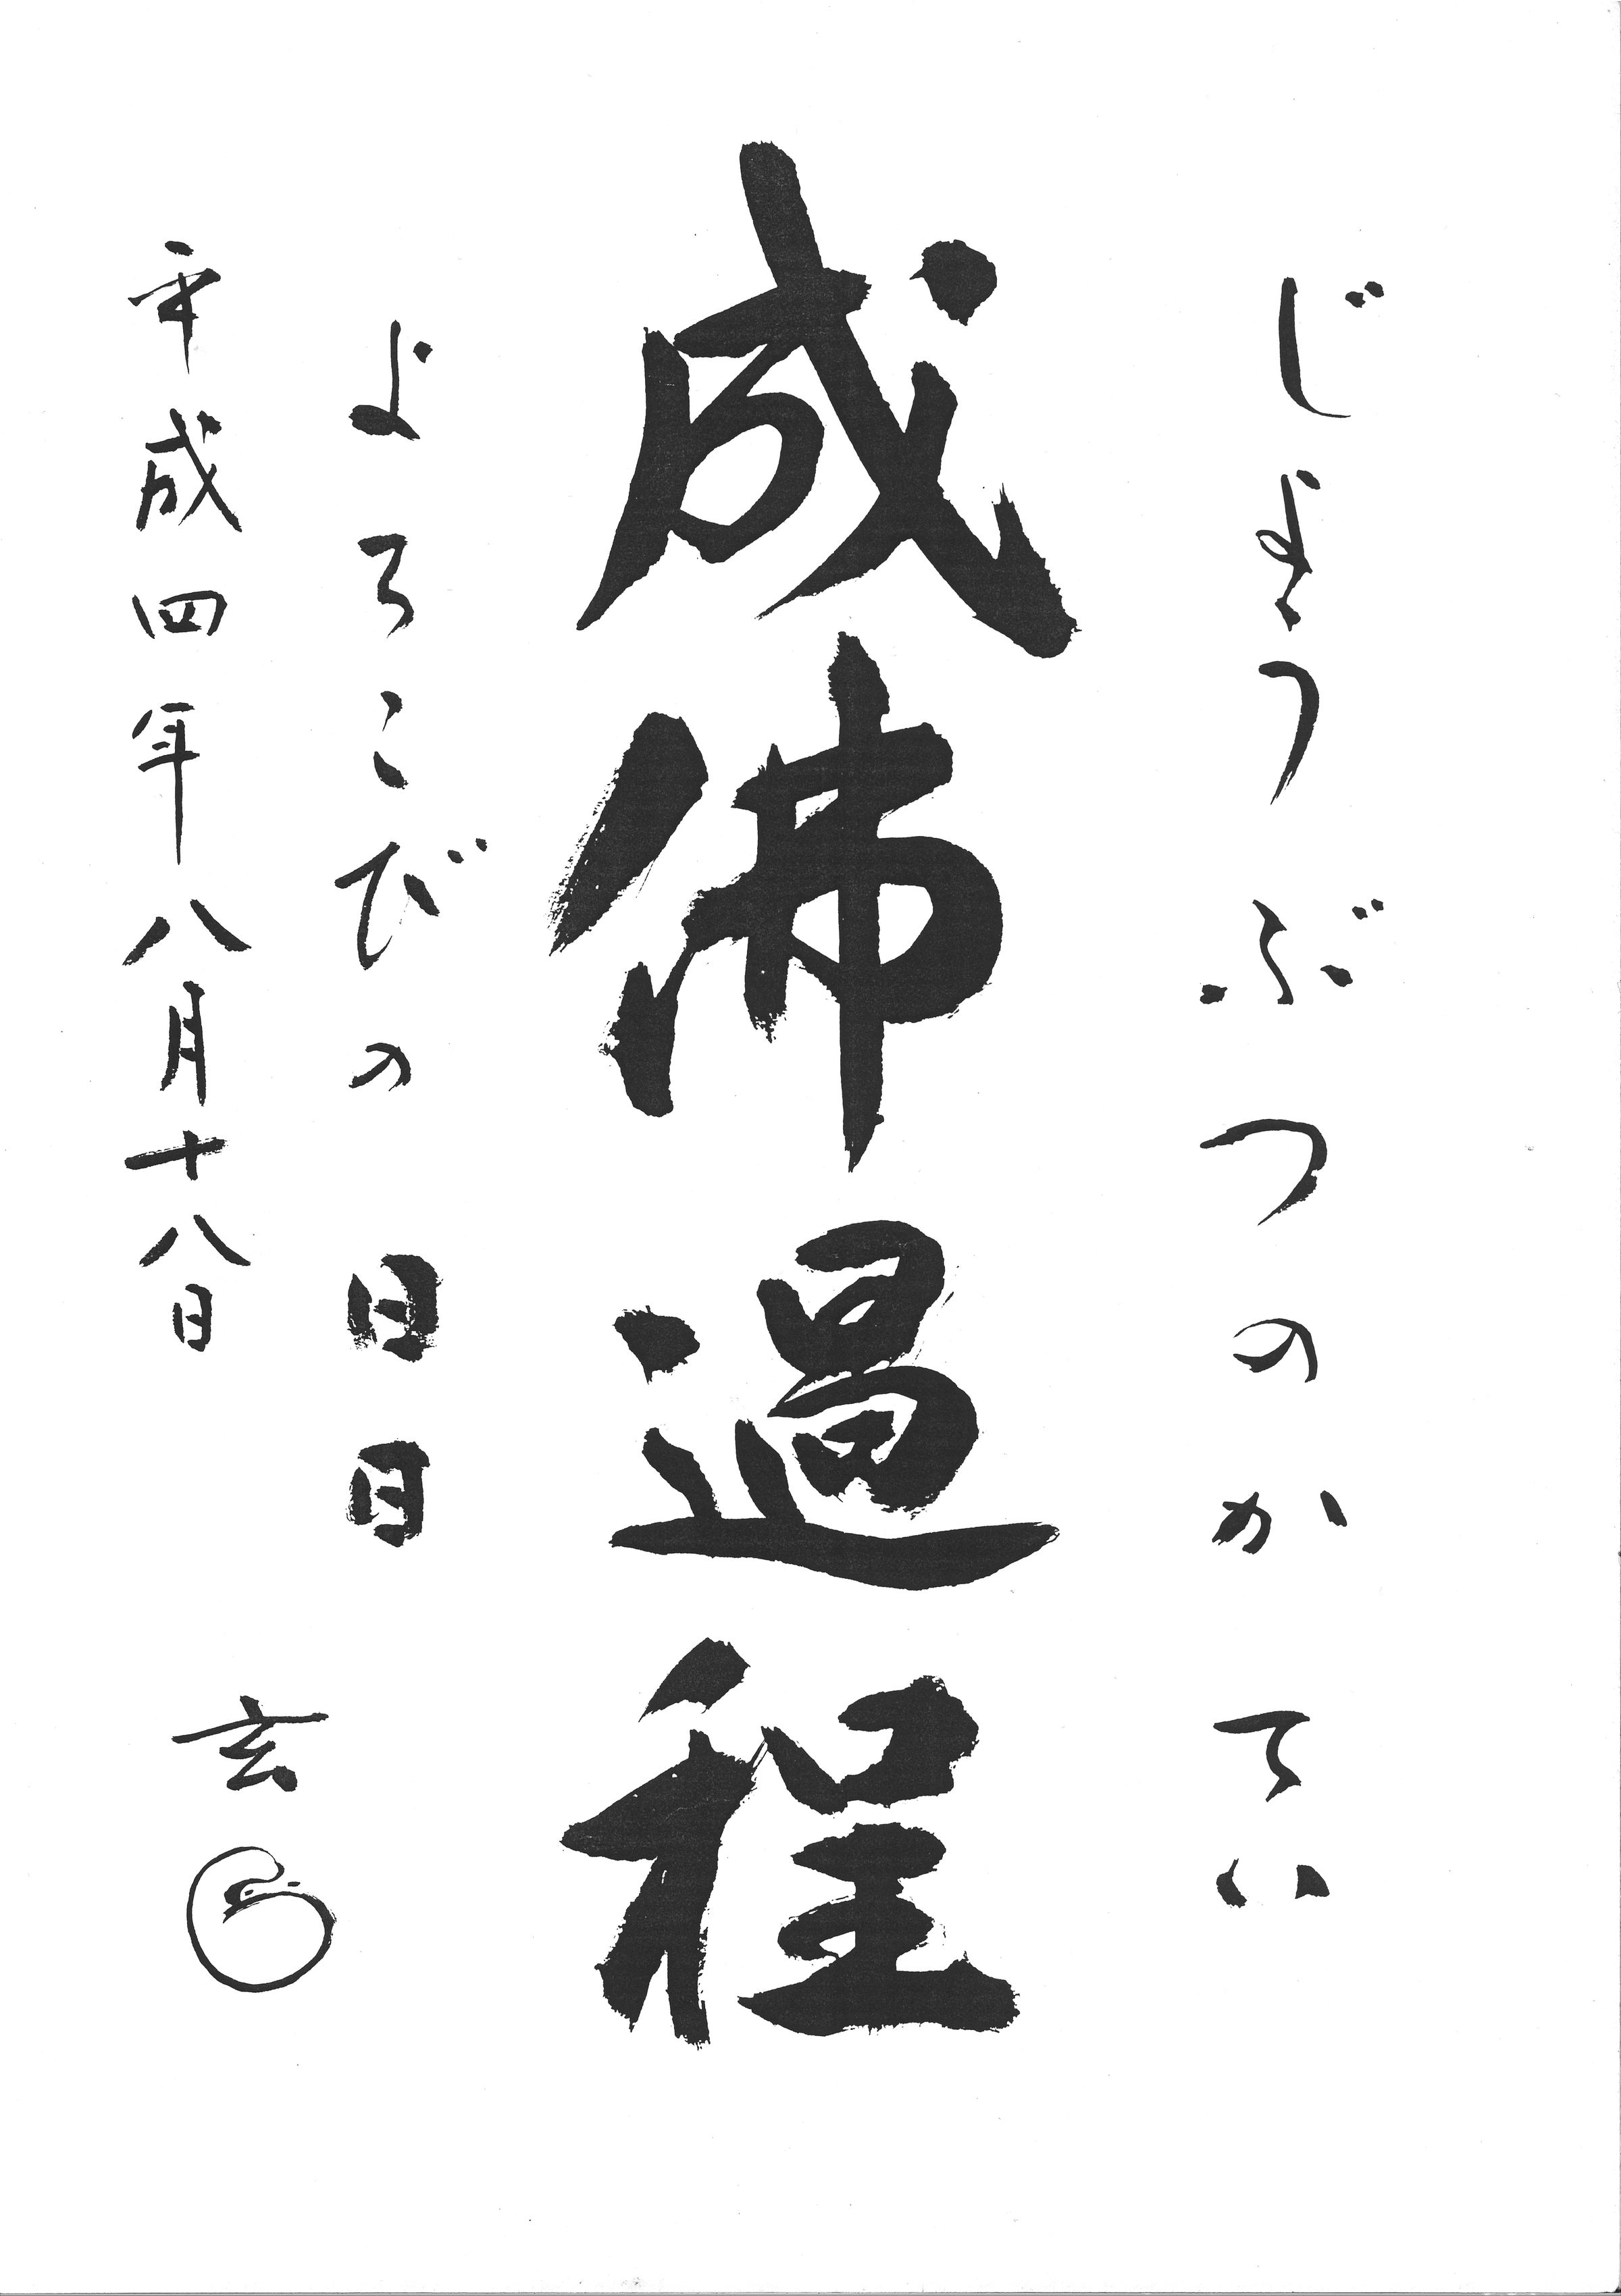 じょうぶつのかてい
成佛過程
よろこびの日日
平成四年八月十八日
玄